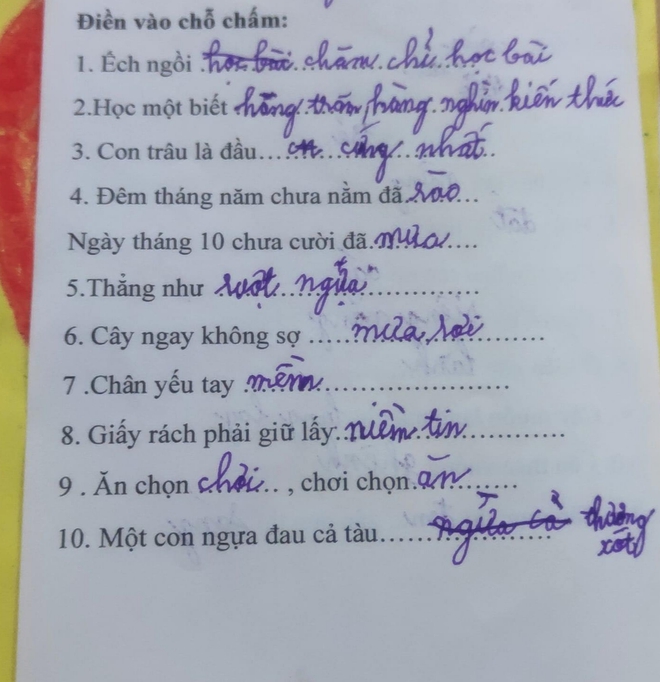 Điền vào chỗ chấm:
1. Ếch ngồi học bài chăm chỉ học bài
2.Học một biết hàng trăm, hàng nghìn kiến thức
3. Con trâu là đầu... cứng nhất..
4. Đêm tháng năm chưa nằm đã.rào...
Ngày tháng 10 chưa cười đã.mưa....
5.Thẳng như .ruột..ngựa.................
6. Cây ngay không sợ .....mưa rơi..........
7 .Chân yếu tay .mềm.......................
8. Giấy rách phải giữ lấy..niềm.tin..............
9 . Ăn chọn chơi... , chơi chọn.ăn.......
10. Một con ngựa đau cả tàu......ngựa cả thương
xót